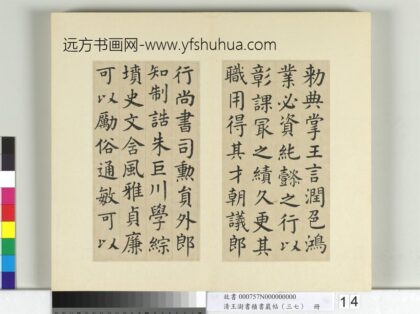 远方书画网-www.yfshuhua.com
勅典掌王言潤色鴻
業必資純懿之行以
彰課最之績久更其
職用得其才朝議郎
行尚書司勲員外郎
知制誥朱巨川學綜
墳史文含風雅貞廉
可以勵俗通敏可以
故書 000757N000000000
清王澍書積書巖帖(三七) 冊
14